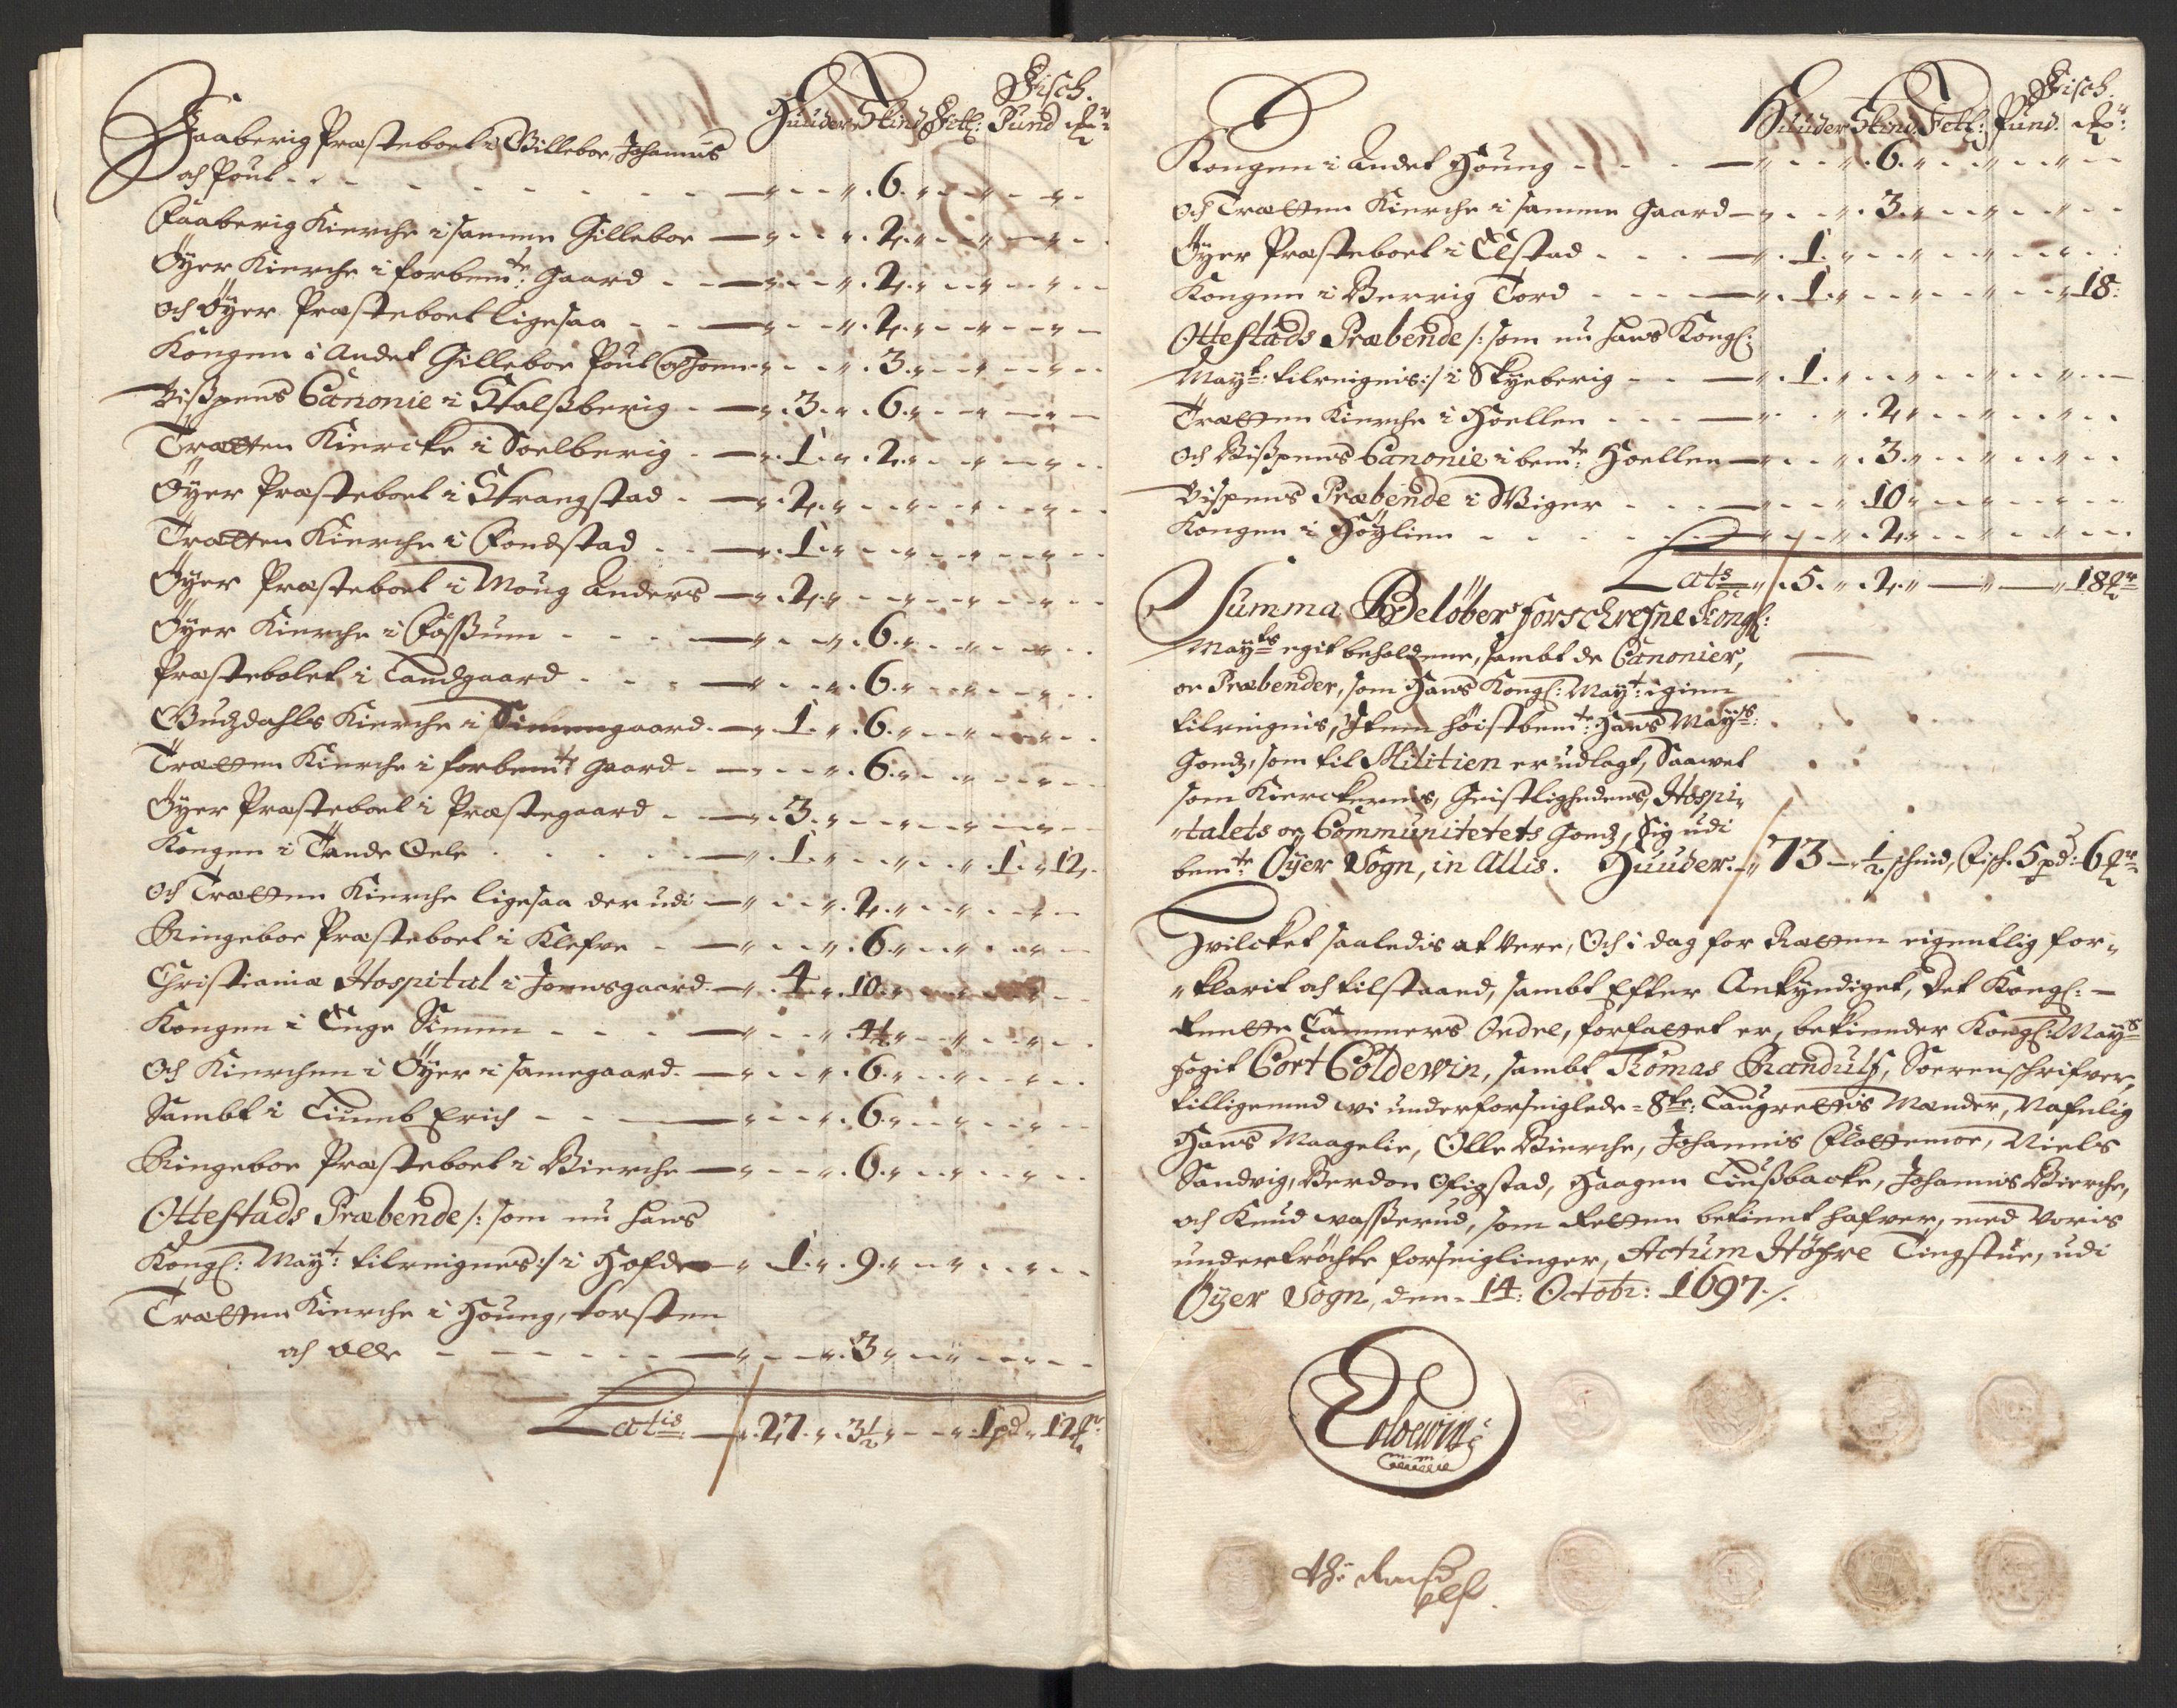 Fisch.
Huuder Skind Setl: Pund ℔r
Faaberig Præsteboel i Gilleboe, Johannis
och Poul - - - - " - - " . 6 . " - - " - - " -
Faaberig Kierche i samme Gilleboe - " - - " . 2 . " - - " - - " -
Öyer Kierche i forbemte: Gaard - - " - - " . 2 . " - - " - - " -
och Öyer Præsteboel ligesaa - - " - - " . 2 . " - - " - - " -
Kongen i Andet Gilleboe Poul och Joen - " - - " . 3 . " - - " - - " -
Bispens Canonie i Stalsberig - " . 3 . " . 6 . " - - " - - " -
Trætten Kiercke i Soelberig - " . 1 . " . 2 . " - - " - - " -
Öyer Præsteboel i Strangstad - " . 2 . " - - " - - " - - " -
Trætten Kierche i Fondstad - - " . 1 . " - - " - - " - - " -
Öyer Præsteboel i Moug Anders - " . 2 . " - - " - - " - - " -
Öyer Kierche i Fossum - - - " - - " . 6 . " - - " - - " -
Præstebolet i Landgaard - - - " - - " . 6 . " - - " - - " -
Gudzdahls Kierche i Simengaard - " . 1 . " . 6 . " - - " - - " -
Trætten Kierche i forbemte Gaard - " - - " . 6 . " - - " - - " -
Öyer Præsteboel i Præstegaard - - " . 3 . " - - " - - " - - " -
Kongen i Tande Oele - - - " . 1 . " - - " - - " . 1 . " 12 .
och Trætten Kierche ligesaa der udi - " - - " . 2 . " - - " - - " -
Ringeboe Præsteboel i Klefve - - " - - " . 6 . " - - " - - " -
Christiania Hospital i Joensgaard - " . 4 " . 10 . " - - " - - " -
Kongen i Enge Simen - - - " - - " 4½ " - - " - - " -
och Kierchen i Öyer i samegaard - " - - " . 6 . " - - " - - " -
Sambt i Tiumb Erich - - " - - " . 6 . " - - " - - " -
Ringeboe Præsteboel i Bierche - " - - " . 6 . " - - " - - " -
Ottestads Præbende /: som nu hans
Kongl: Mayt: tilreignes :/ i Hofde - " . 1 . " . 9 . " - - " - - " -
Trætten Kierche i Houng, torsten
och Olle - - - - " - - " . 3 " - - " - - " -
Latis - " . 27 . " . 3½ " - - " . 1 pd " 12 ℔r
Fisch.
Huuder Skind Setl: Pund. ℔r:
Kongen i Andet Houng - - - " - - " . 6 . " - - " - - " -
och Trætten Kierche i samme Gaard - " - - " . 3 . " - - " - - " -
Öyer Præsteboel i Elstad - - - " . 1 . " - - " - - " - - "
Kongen i Berrig Tord - - - " . 1 . " - - " - - " - - " 18 :
Ottestads Præbende /: som nu hans Kongl:
Mayt: tilreignis :/ i Skyeberig - - " . 1 . " - - " - - " - -
Trætten Kierche i Hoellen - - - " - - " . 2 " - - " - - " -
och Bispens Canonie i bemte: Hoellen - " - - " . 3 . " - - " - - " -
Bispens Præbende i Wiger - - - " - - " 10 " - - " - - " -
Kongen i Höylien - - - - " - - " . 2 . " - - " - - " -
Lats " . 5 . " . 2 . " - " - " 18 ℔r
Summa Beløber forschrefne Kongl:
Mayts egit beholdene, sambt de Canonier,
oc Præbender, som Hans Kongl: Mayt: igien
tilreignis, Item höistbemte: Hans Mayts:
Godz, som til Militien er udlagt, Saawel
som Kierckernes, Geistlighedens, Hospi-
"talets oc Communitetets Godz, Sig udi
bemte: Öyer Sogn, in Allis. Huuder - " 73 - " ½ schind, Fisch 5 pd: 6 ℔r
Hvilcket saaledis at Vere, Och i dag for Rætten eigentlig for-
"klarit och tilstaaed, sambt Efter Ankyndiget, det Kongl: -
Rentte Cammers Ordre, forfattet er, bekiender Kongl: Mays
fogit Cort Coldewin, sambt Tomas Randulf, Sorenschrifver,
tilligemed wi underforseiglede = 8te: Laugrettis Mænder, Nafnlig
Hans Maagelie, Olle Bierche, Johannis Flottemoe, Niels
Sandvig, Berdon Ofigstad, Haagen Tiusbacke, Johannis Bierche,
och Knud wasserud, som Retten betient hafver, med Voris
undertröchte forseiglinger, Actum Höfre Tingstue, udi
Öyer Sogn, den - 14: Octobr: 1697 ./.
Coldewin